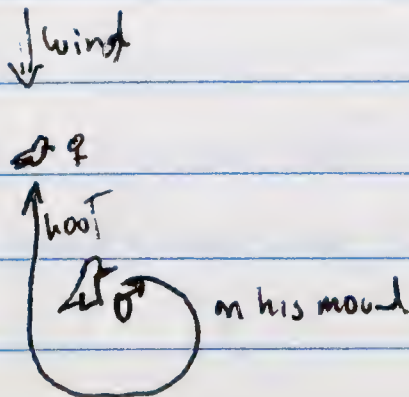 wind
♀
hoot
♂ on his mound